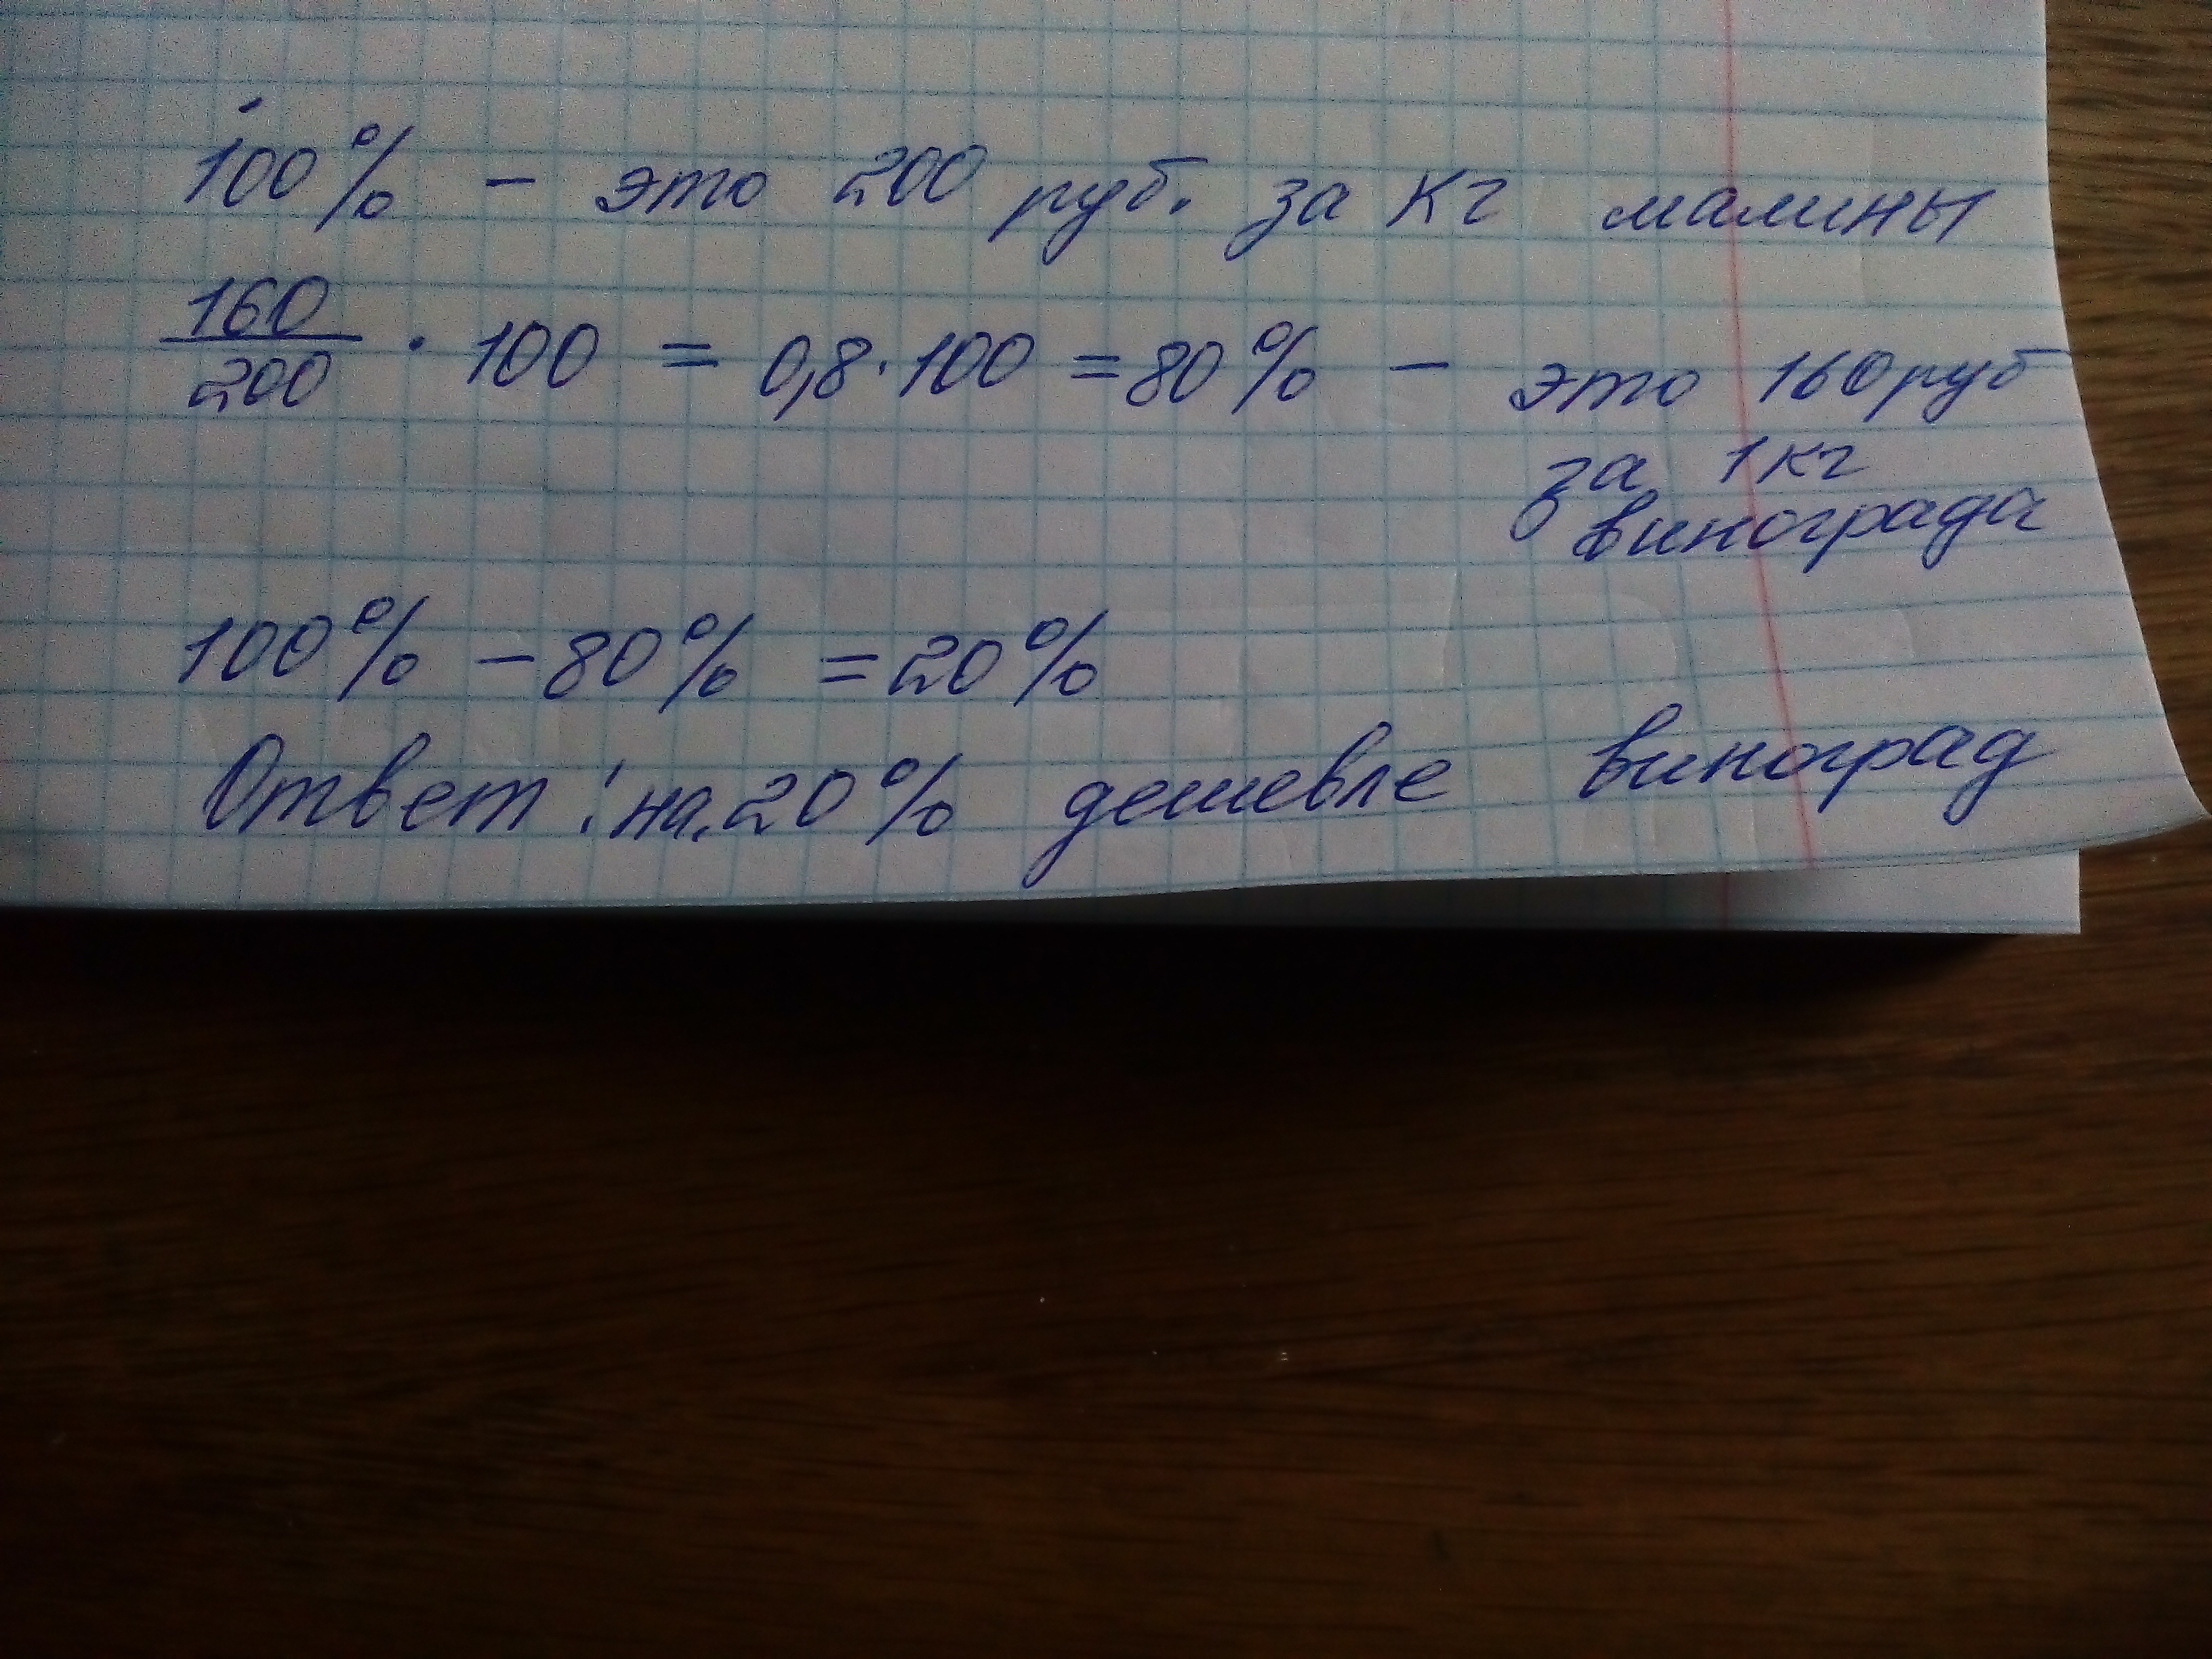 100% - это 200 руб. за кг малины
160/200 · 100 = 0,8 · 100 = 80% - это 160 руб
за 1 кг
винограда
100% - 80% = 20%
Ответ: на 20% дешевле виноград